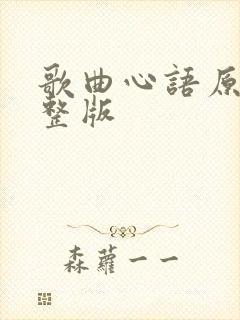 歌曲心語原
整版
森蘿一一